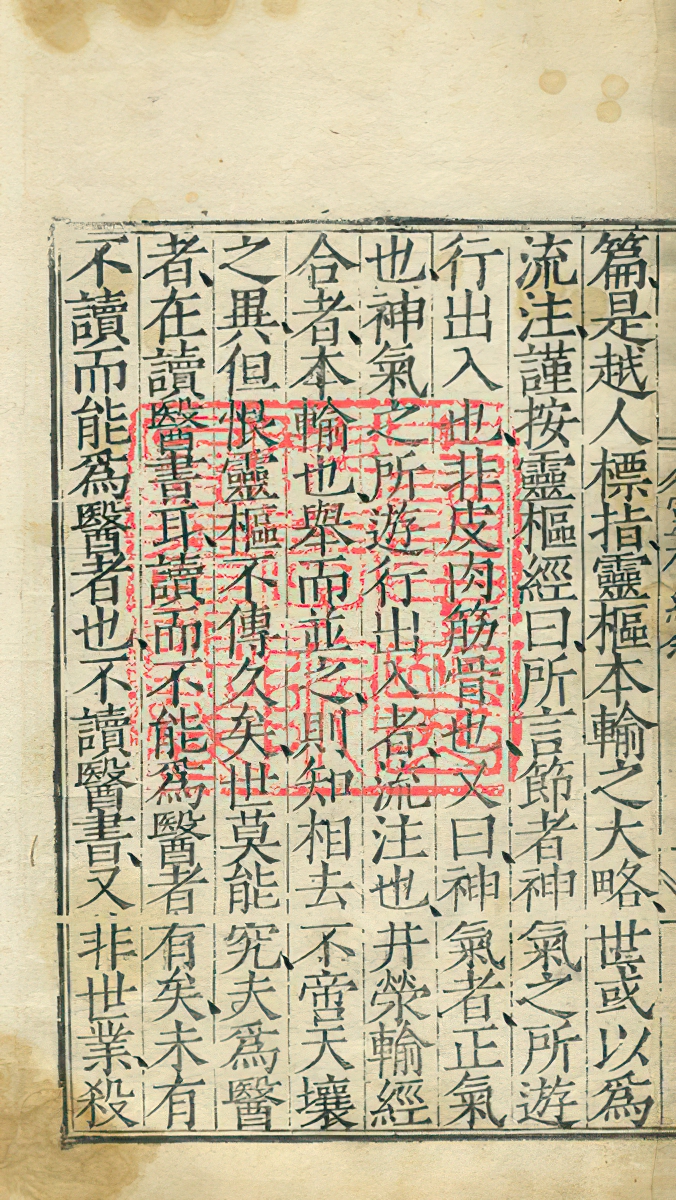 篇、是越人標指、靈樞本輸之大略、世或以爲
流注、謹按靈樞經曰、所言節者神氣之所遊
行出入也、非皮肉筋骨也、又曰、神氣者、正氣
也、神氣之所遊行出入者、流注也、井滎輸經
合者、本輸也、舉而並之、則知相去不啻天壤
之異、但恨靈樞不傳久矣、世莫能究、夫爲醫
者、在讀醫書耳、讀而不能爲醫者有矣、未有
不讀而能爲醫者也、不讀醫書、又非世業、殺